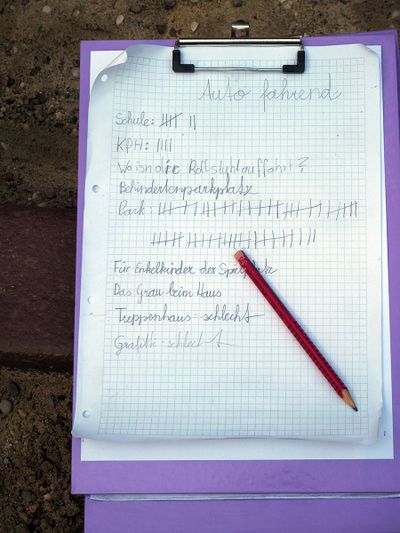 Auto fahrend
Schule: |||| ||
KPH: ||||
Wo ist die Rollstuhlauffahrt?
Behindertenparkplatz
Park:
Für Enkelkinder der Spielplatz
Das Grau beim Haus
Treppenhaus - schlecht
Grafitti - schlecht